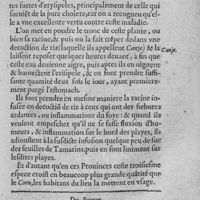 tes sortes d'erysipeles, principalement de celles qui
suruiēt de la pure cholere, car on a recogneu qu'el-
le a vne excellente vertu contre ceste maladie.
L'on met en poudre le tronc de ceste plante, ou
bien sa racine, & puis on la fait tréper dedans vne
decoction de riz (laquelle ils appellent Canje) & la
Canje.
laissent reposer quelques heures deuant, à fin que
ceste eau deuienne aigre, puis apres ils en oignent
& humectent l'erisipele, & en font prendre suffi-
sante quantité deux fois le iour, ayant premiere-
ment purgé l'estomach.
Ils font prendre en mesme maniere la racine in-
fusée en decoctiō de riz à ceux qui ont des fiebures
ardantes, ou inflammations du foye: & quand ils
veulent empescher qu'il ne se fasse fluxion d'hu-
meurs, & inflammation sur le bord des playes, ils
adioustent à la susdicte infusion quelque peu de suc
des feuilles de Tamarins, puis en font linimēt sur
lesdites playes.
Et d'autant qu'en ces Prouinces ceste troisiesme
espece croist en beaucoup plus grande quātité que
le Curo, les habitans du lieu la mettent en vsage.